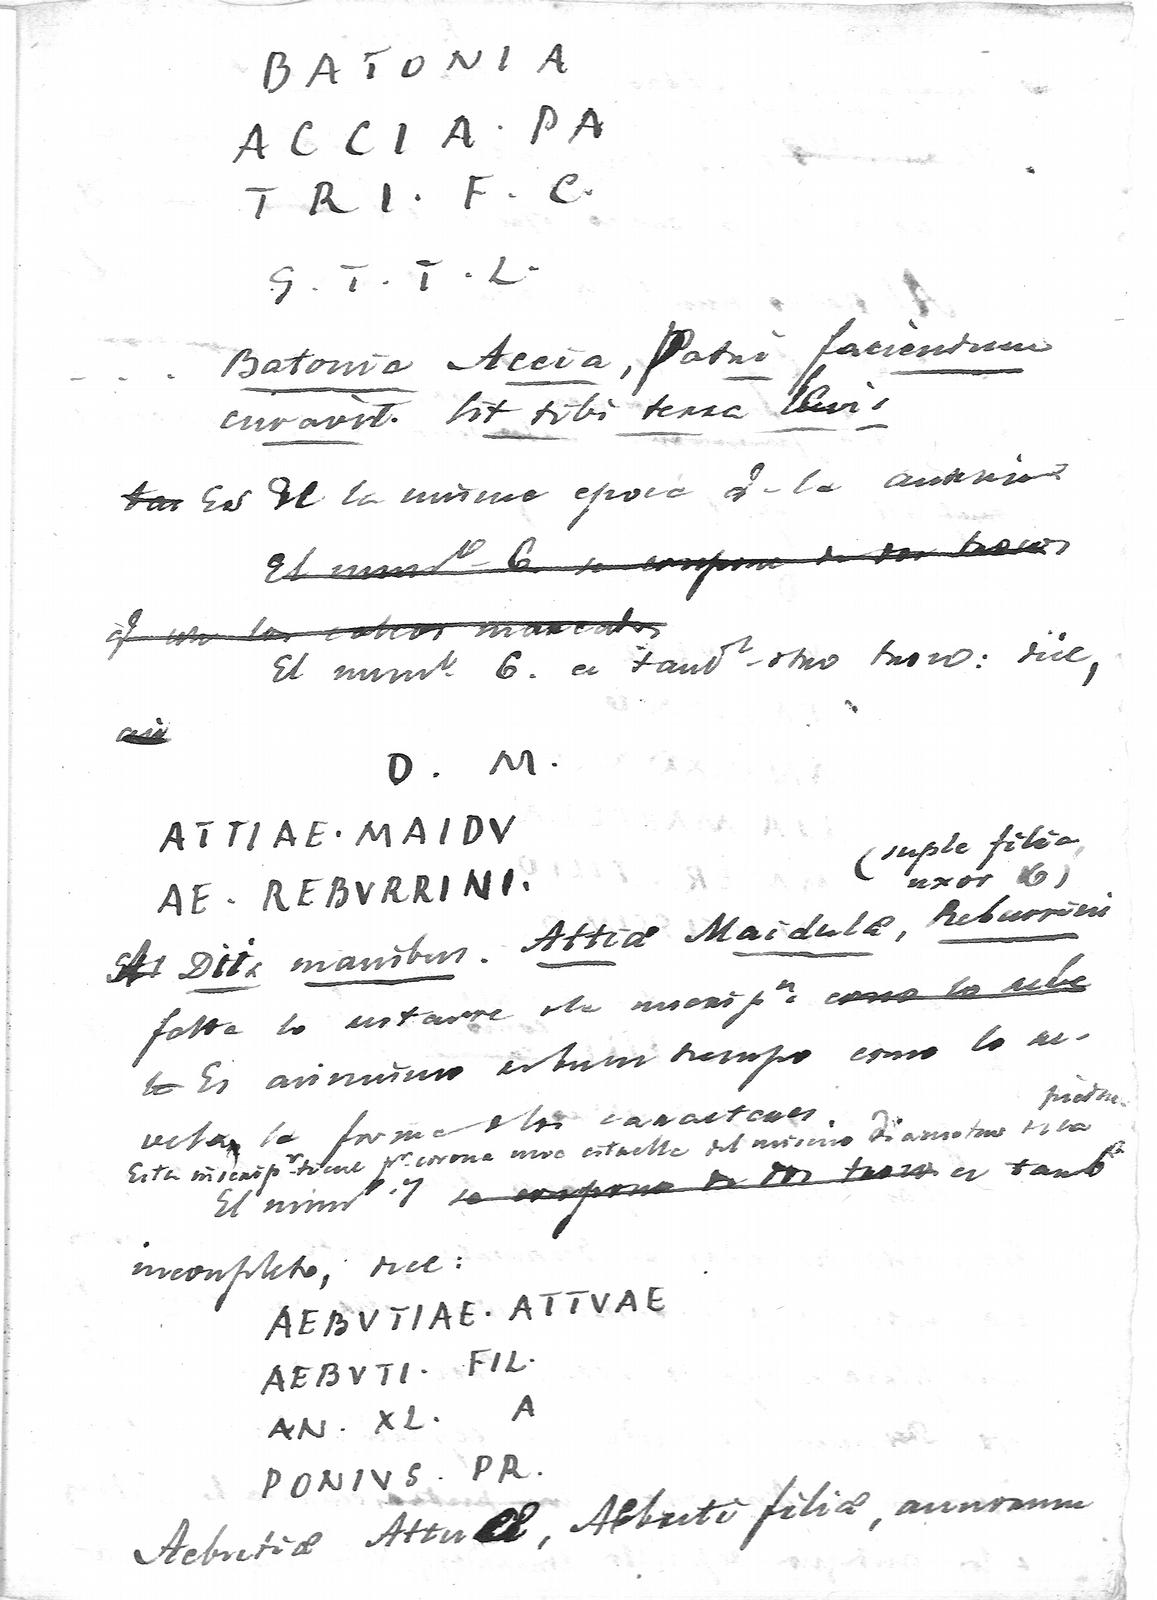 BATONIA
ACCIA. PA
TRI. F. C.
S. T. T. L.
Batonia Accia, Patri faciendum
curavit. Sit tibi terra levis
Es de la misma epoca q. la anterior
El num.º 6. se compone de dos trozos
q. son los marcados
El num.º 6. es tamb.n otro trozo: dice,
asi
D. M.
ATTIAE. MAIDV
AE. REBVRRINI.
(suple filia,
uxor &)
Diis manibus. Attiæ Maidulæ, Reburrini
falta lo restante de la inscrip.n como lo
Es asimismo de buen tiempo como lo re-
vela la forma de los caracteres.
Esta inscrip.n tiene p.r corona una estrella del mismo diametro de la piedra.
El num.º 7 se compone de dos trozos es tamb.n
incompleto, dice:
AEBVTIAE. ATTVAE
AEBVTI. FIL.
AN. XL. A
PONIVS. PR.
Aebutiæ Attuæ, Aebuti filiæ, annorum